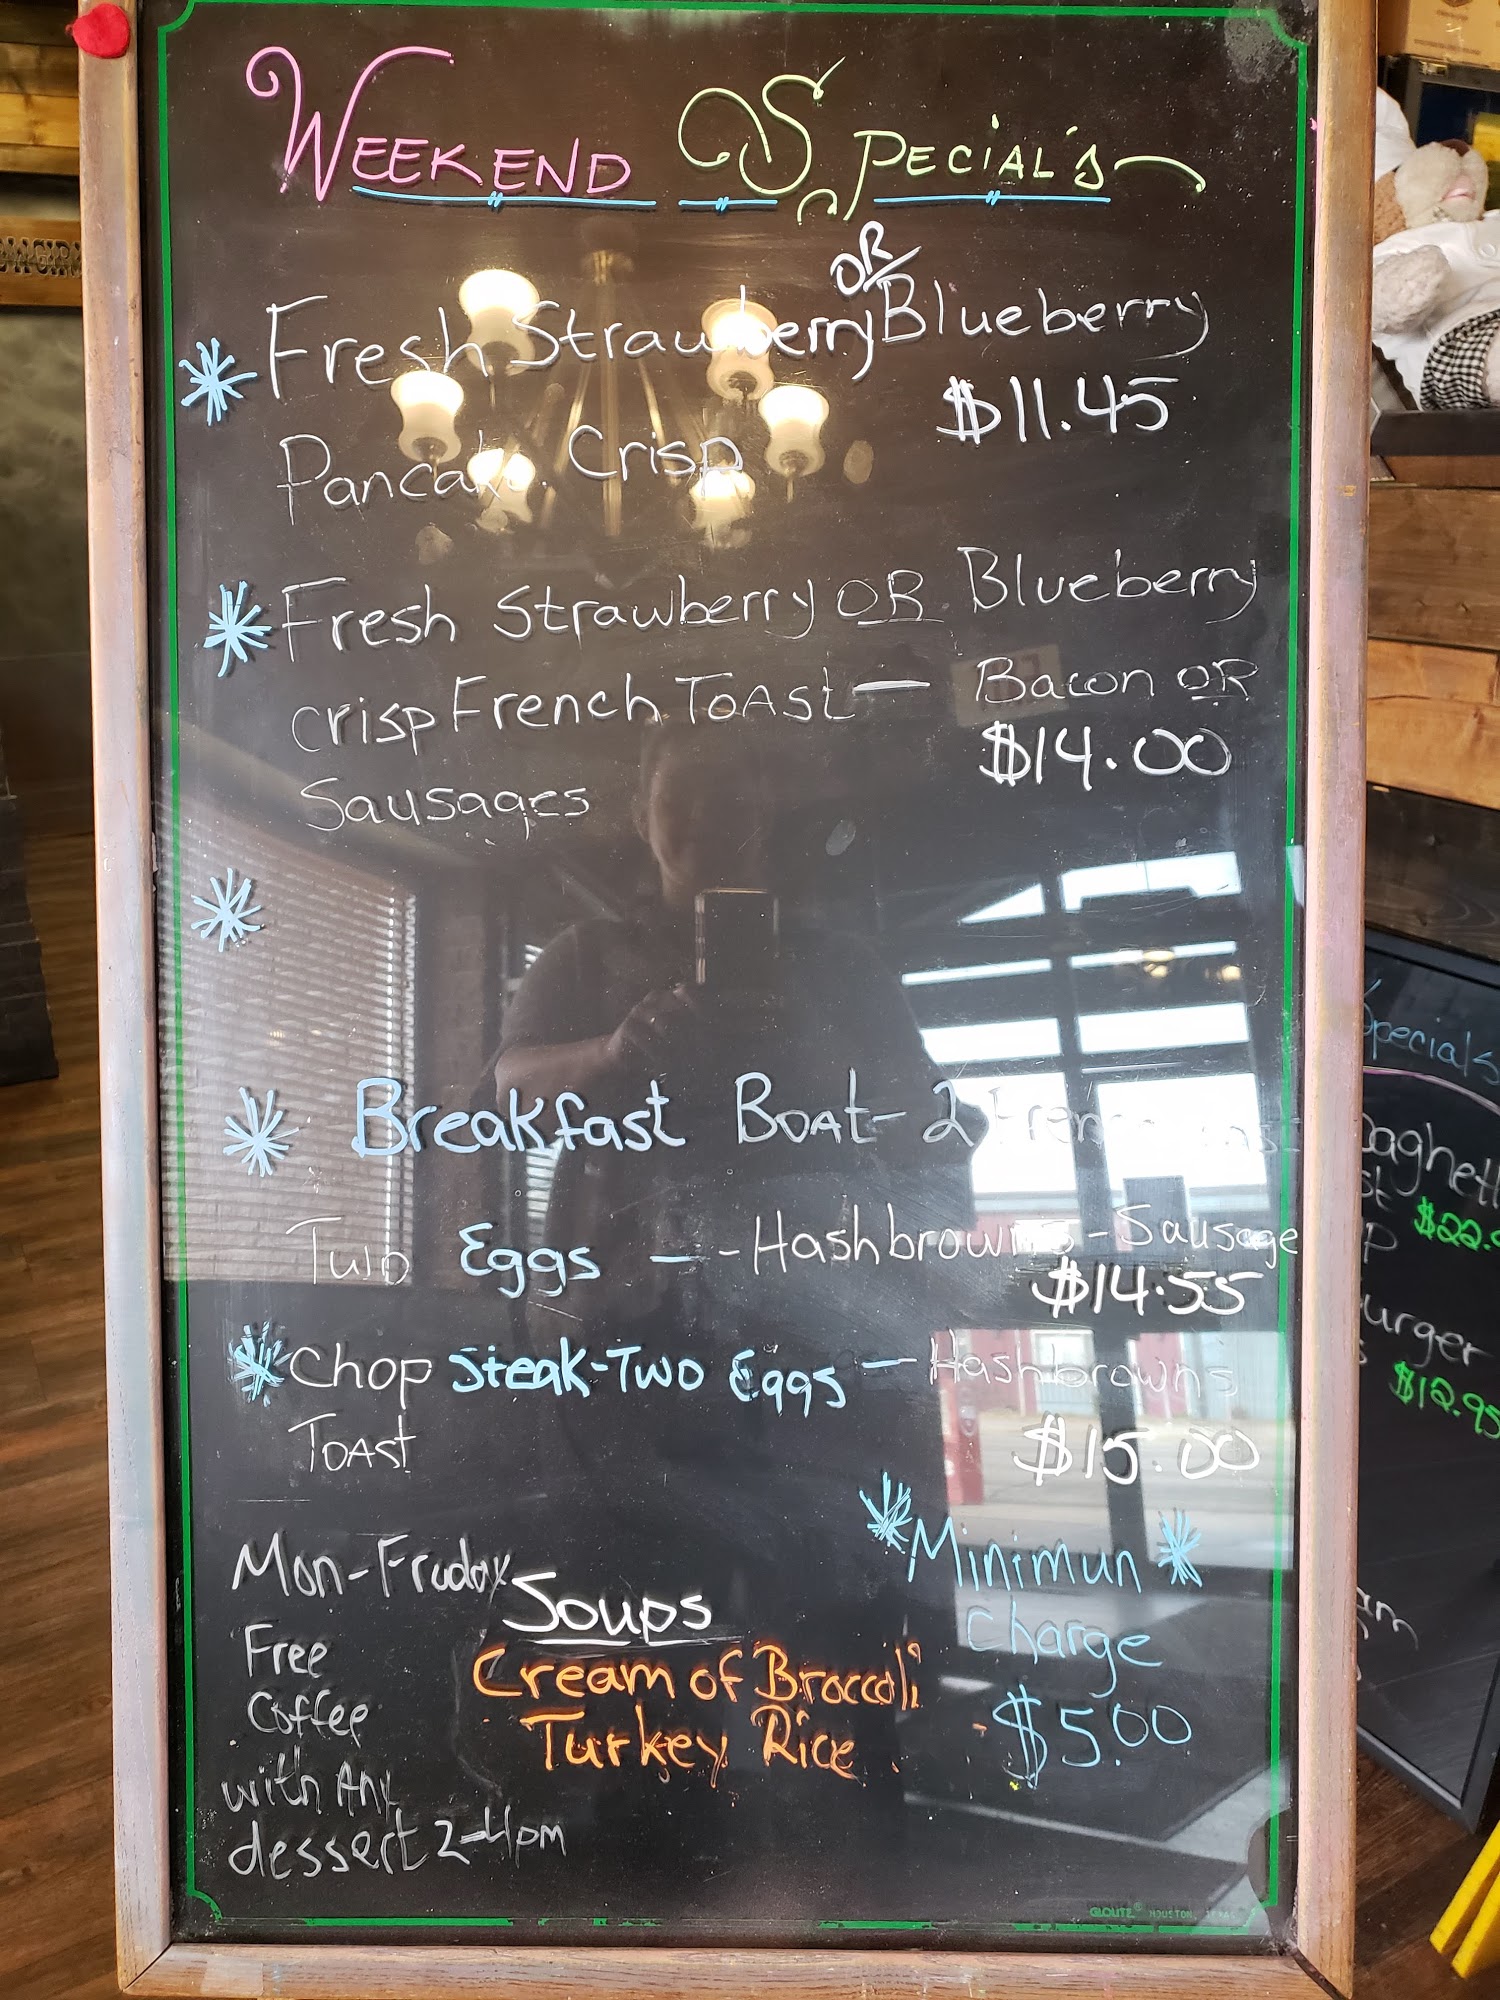 WEEKEND SPECIAL'S
OR
Fresh Strawberry Blueberry
$11.45
Pancake Crisp
Fresh Strawberry OR Blueberry
crisp French Toast — Bacon OR
$14.00
Sausages
Breakfast Boat - 2 French
Two Eggs — - Hashbrowns - Sausage
$14.55
Chop Steak - Two Eggs — Hashbrowns
Toast
$15.00
Mon-Friday
Free
Coffee
with Any
dessert 2-4pm
Soups
Cream of Broccoli
Turkey Rice
Minimun
Charge
$5.00
GLOLITE® HOUSTON, TEXAS
Specials
$22.
urger
$12.95